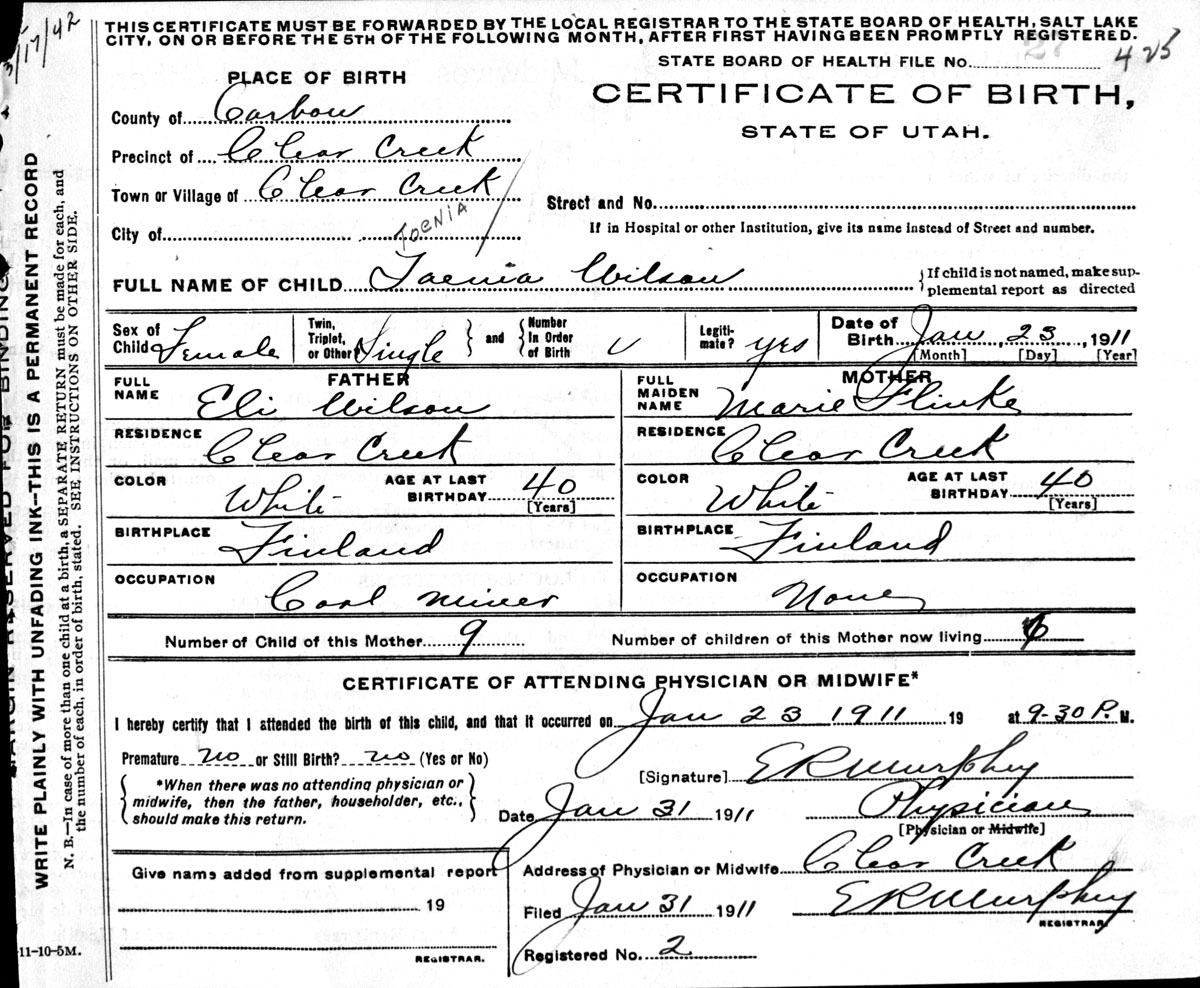 3/17/42
THIS CERTIFICATE MUST BE FORWARDED BY THE LOCAL REGISTRAR TO THE STATE BOARD OF HEALTH, SALT LAKE
CITY, ON OR BEFORE THE 5TH OF THE FOLLOWING MONTH, AFTER FIRST HAVING BEEN PROMPTLY REGISTERED.
STATE BOARD OF HEALTH FILE No. 425
PLACE OF BIRTH
CERTIFICATE OF BIRTH,
STATE OF UTAH.
County of Carbon
Precinct of Clear Creek
Town or Village of Clear Creek
Street and No.
City of TOENIA
If in Hospital or other Institution, give its name instead of Street and number.
FULL NAME OF CHILD Taenia Wilson
If child is not named, make sup-
plemental report as directed
Sex of Child Female
Twin, Triplet, or Other Single
and
Number In Order of Birth
Legiti-mate? yes
Date of Birth Jan 23, 1911
[Month] [Day] [Year]
FATHER
MOTHER
FULL NAME Eli Wilson
FULL MAIDEN NAME Marie Flinke
RESIDENCE Clear Creek
RESIDENCE Clear Creek
COLOR White AGE AT LAST BIRTHDAY 40 [Years]
COLOR White AGE AT LAST BIRTHDAY 40 [Years]
BIRTHPLACE Finland
BIRTHPLACE Finland
OCCUPATION Coal Miner
OCCUPATION None
Number of Child of this Mother 9
Number of children of this Mother now living 6
CERTIFICATE OF ATTENDING PHYSICIAN OR MIDWIFE*
I hereby certify that I attended the birth of this child, and that it occurred on Jan 23 1911 19 at 9-30 P. M.
Premature no or Still Birth? no (Yes or No)
*When there was no attending physician or
midwife, then the father, householder, etc.,
should make this return.
[Signature] E R Murphy
Date Jan 31 1911
Physician
[Physician or Midwife]
Give name added from supplemental report
19
REGISTRAR.
Address of Physician or Midwife Clear Creek
Filed Jan 31 1911
E R Murphy
REGISTRAR
Registered No. 2
11-10-5M.
MARGIN RESERVED FOR BINDING
WRITE PLAINLY WITH UNFADING INK—THIS IS A PERMANENT RECORD
N. B.—In case of more than one child at a birth, a SEPARATE RETURN must be made for each, and
the number of each, in order of birth, stated. SEE INSTRUCTIONS ON OTHER SIDE.